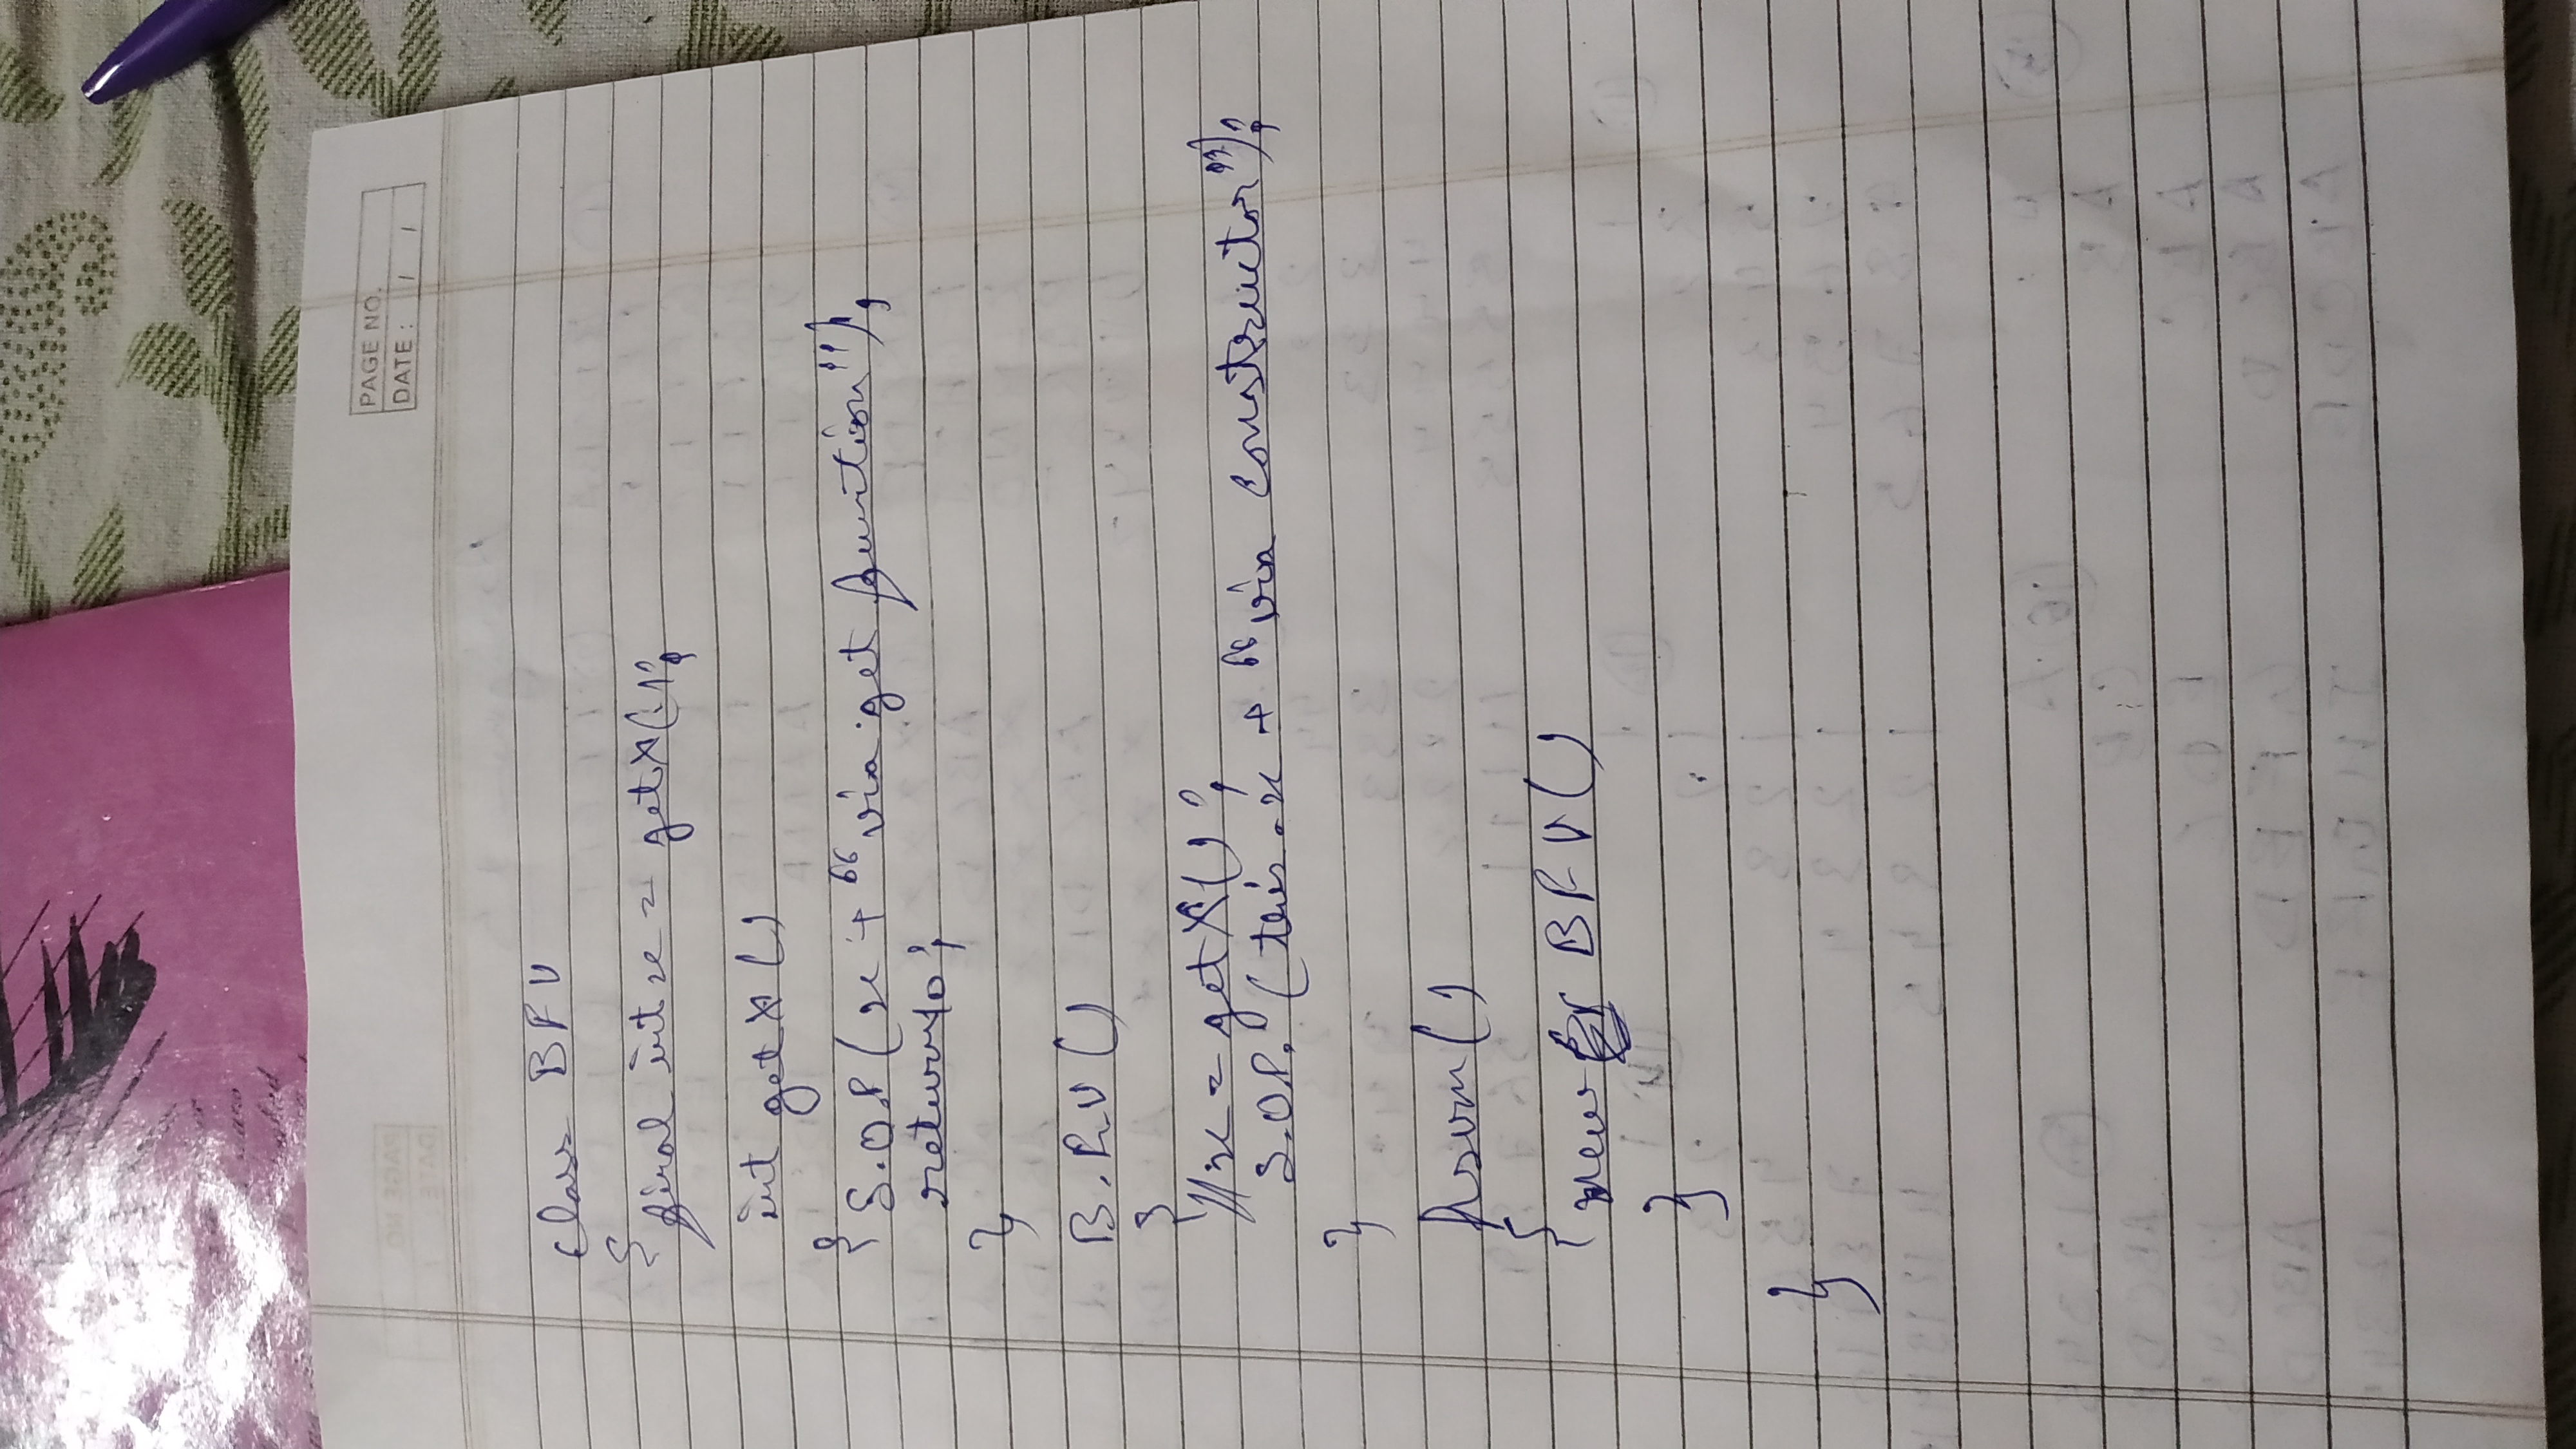 PAGE NO.
DATE : / /
class BFV
{
final int x = getX();
int getX()
{
S.O.P (x + "via get function");
return 10;
}
B.F.V()
{
//x = getX();
S.O.P. (this.x + "via constructor");
}
{
new BFV()
}
}